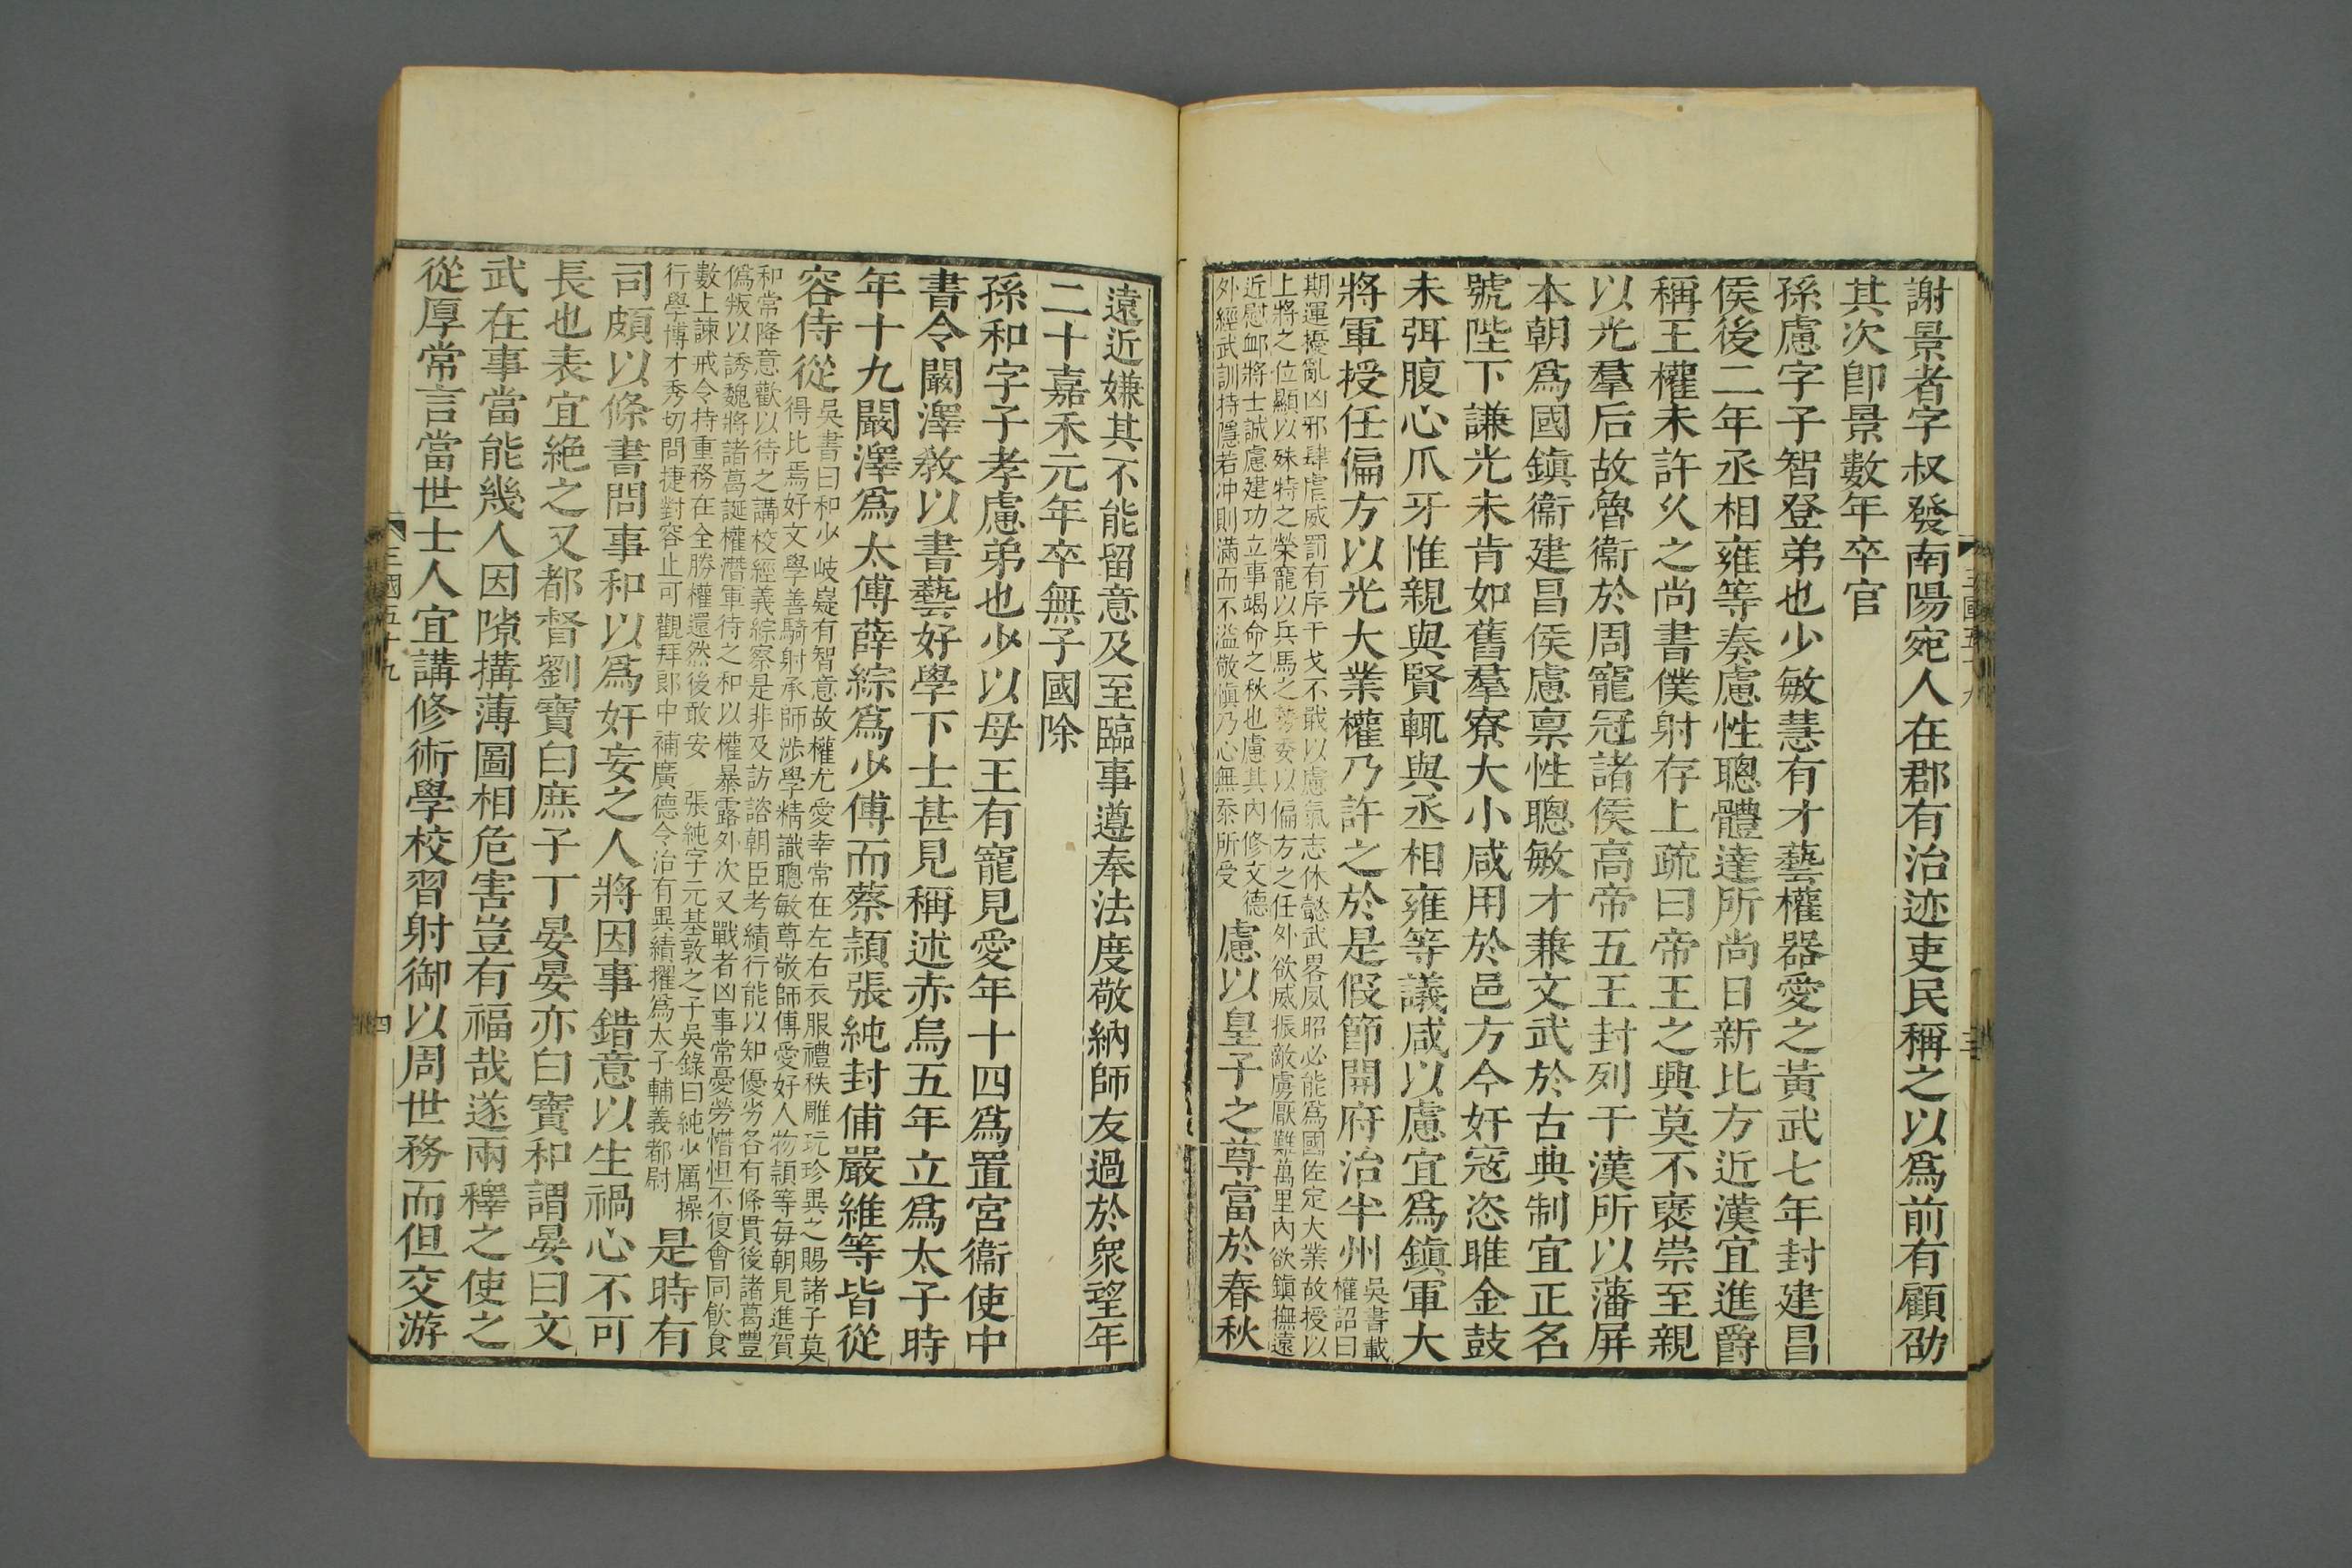 謝景者字叔發南陽宛人在郡有治迹吏民稱之以爲前有顧劭
其次卽景數年卒官
孫慮字子智登弟也少敏慧有才藝權器愛之黃武七年封建昌
侯後二年丞相雍等奏慮性聰體達所尚日新比方近漢宜進爵
稱王權未許久之尚書僕射存上疏曰帝王之興莫不襃崇至親
以光羣后故魯衞於周寵冠諸侯高帝五王封列于漢所以藩屏
本朝爲國鎭衞建昌侯慮稟性聰敏才兼文武於古典制宜正名
號陛下謙光未肯如舊羣寮大小咸用於邑方今奸寇恣睢金鼓
未弭腹心爪牙惟親與賢輒與丞相雍等議咸以慮宜爲鎭軍大
將軍授任偏方以光大業權乃許之於是假節開府治半州吳書載
權詔曰
期運擾亂凶邪肆虐威罰有序干戈不戢以慮氣志休懿武畧夙昭必能爲國佐定大業故授以
上將之位顯以殊特之榮寵以兵馬之勢委以偏方之任外欲威振敵虜厭難萬里內欲鎭撫遠
近慰卹將士誠慮建功立事竭命之秋也慮其內修文德
外經武訓持隱若冲則滿而不溢敬愼乃心無忝所受
慮以皇子之尊富於春秋
遠近嫌其不能留意及至臨事遵奉法度敬納師友過於衆望年
二十嘉禾元年卒無子國除
孫和字子孝慮弟也少以母王有寵見愛年十四爲置宮衞使中
書令闞澤敎以書藝好學下士甚見稱述赤烏五年立爲太子時
年十九闞澤爲太傅薛綜爲少傅而蔡潁張純封俌嚴維等皆從
容侍從
吳書曰和少岐嶷有智意故權尤愛幸常在左右衣服禮秩雕玩珍異之賜諸子莫
得比焉好文學善騎射承師涉學精識聰敏尊敬師傅愛好人物潁等每朝見進賀
和常降意歡以待之講校經義綜察是非及訪諮朝臣考績行能以知優劣各有條貫後諸葛豐
僞叛以誘魏將諸葛誕權潛軍待之和以權暴露外次又戰者凶事常憂勞憯怛不復會同飮食
數上諫戒令持重務在全勝權還然後敢安　張純字元基敦之子吳錄曰純少厲操
行學博才秀切問捷對容止可觀拜郎中補廣德令治有異績擢爲太子輔義都尉
是時有
司頗以條書問事和以爲奸妄之人將因事錯意以生禍心不可
長也表宜絕之又都督劉寶白庶子丁晏晏亦白寶和謂晏曰文
武在事當能幾人因隙搆薄圖相危害豈有福哉遂兩釋之使之
從厚常言當世士人宜講修術學校習射御以周世務而但交游
三國五十九
三
三國五十九
四